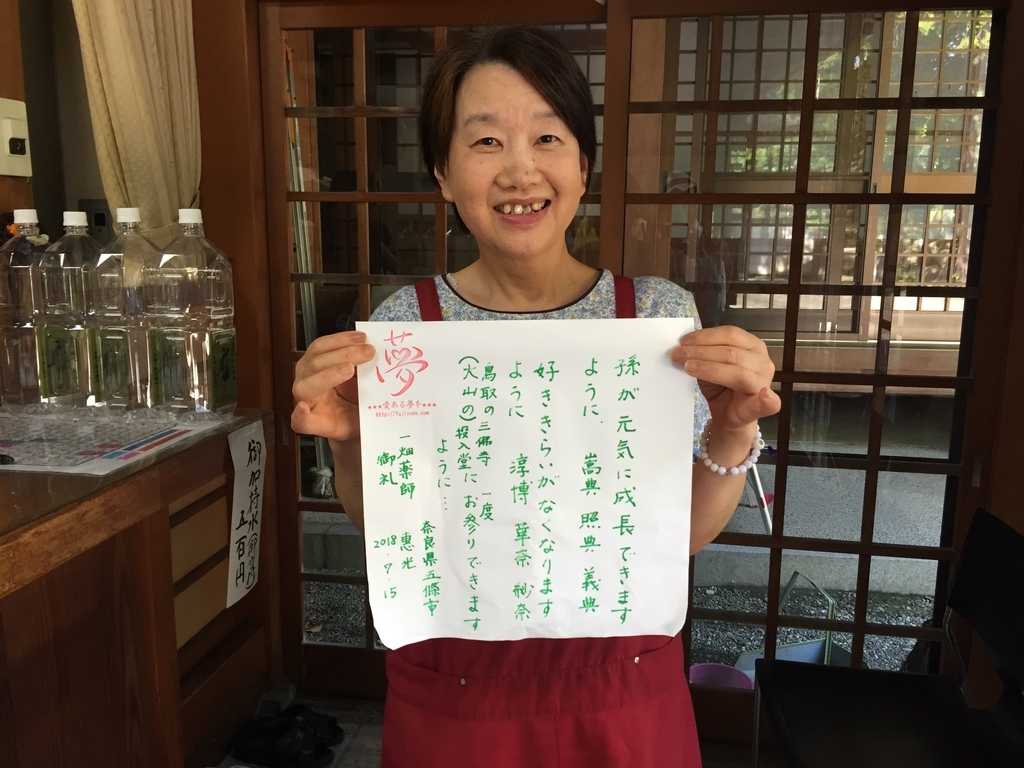 夢
★★★愛ある夢を★★★
http://fujiyume.com
孫が元気に成長できます
ように、 嵩典 照典 義典
好ききらいがなくなります
ように 淳博 華奈 紗奈
鳥取の三佛寺 一度
(大山の)投入堂にお参りできます
ように…
奈良県五條市
一畑薬師 恵光
御礼 2018.7.15
御加持水
五百円